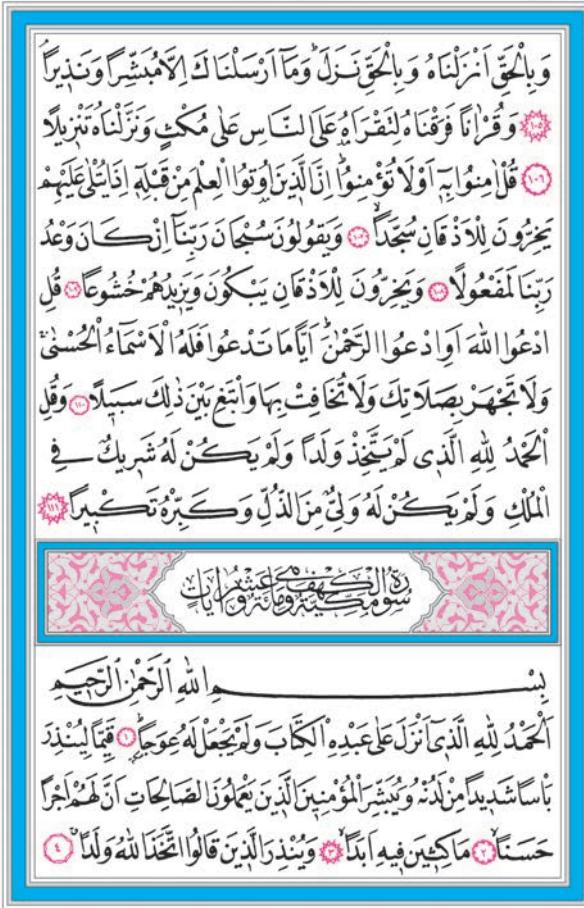 وَبِالْحَقِّ اَنْزَلْنَاهُ وَبِالْحَقِّ نَزَلَۜ وَمَٓا اَرْسَلْنَاكَ اِلَّا مُبَشِّراً وَنَذ۪يراًۢ
﴿١٠٥﴾ وَقُرْاٰناً فَرَقْنَاهُ لِتَقْرَاَهُ عَلَى النَّاسِ عَلٰى مُكْثٍ وَنَزَّلْنَاهُ تَنْز۪يلاً
﴿١٠٦﴾ قُلْ اٰمِنُوا بِه۪ٓ اَوْ لَا تُؤْمِنُواۜ اِنَّ الَّذ۪ينَ اُو۫تُوا الْعِلْمَ مِنْ قَبْلِه۪ٓ اِذَا يُتْلٰى عَلَيْهِمْ
يَخِرُّونَ لِلْاَذْقَانِ سُجَّداًۙ ﴿١٠٧﴾ وَيَقُولُونَ سُبْحَانَ رَبِّنَٓا اِنْ كَانَ وَعْدُ
رَبِّنَا لَمَفْعُولاً ﴿١٠٨﴾ وَيَخِرُّونَ لِلْاَذْقَانِ يَبْكُونَ وَيَز۪يدُهُمْ خُشُوعاً ﴿١٠٩﴾ قُلِ
ادْعُوا اللّٰهَ اَوِ ادْعُوا الرَّحْمٰنَۜ اَياًّ مَا تَدْعُوا فَلَهُ الْاَسْمَٓاءُ الْحُسْنٰىۚ
وَلَا تَجْهَرْ بِصَلَاتِكَ وَلَا تُخَافِتْ بِهَا وَابْتَغِ بَيْنَ ذٰلِكَ سَب۪يلاً ﴿١١٠﴾ وَقُلِ
الْحَمْدُ لِلّٰهِ الَّذ۪ي لَمْ يَتَّخِذْ وَلَداً وَلَمْ يَكُنْ لَهُ شَر۪يكٌ فِي
الْمُلْكِ وَلَمْ يَكُنْ لَهُ وَلِيٌّ مِنَ الذُّلِّ وَكَبِّرْهُ تَكْب۪يراً ﴿١١١﴾
سُورَةُ الْكَهْفِ مَكِّيَّةٌ وَهِيَ مِائَةٌ وَعَشْرُ اٰيَاتٍ
بِسْمِ اللّٰهِ الرَّحْمٰنِ الرَّح۪يمِ
اَلْحَمْدُ لِلّٰهِ الَّذ۪ٓي اَنْزَلَ عَلٰى عَبْدِهِ الْكِتَابَ وَلَمْ يَجْعَلْ لَهُ عِوَجاًۜ ﴿١﴾ قَيِّماً لِيُنْذِرَ
بَاْساً شَد۪يداً مِنْ لَدُنْهُ وَيُبَشِّرَ الْمُؤْمِن۪ينَ الَّذ۪ينَ يَعْمَلُونَ الصَّالِحَاتِ اَنَّ لَهُمْ اَجْراً
حَسَناًۙ ﴿٢﴾ مَاكِث۪ينَ ف۪يهِ اَبَداًۙ ﴿٣﴾ وَيُنْذِرَ الَّذ۪ينَ قَالُوا اتَّخَذَ اللّٰهُ وَلَداًۗ ﴿٤﴾